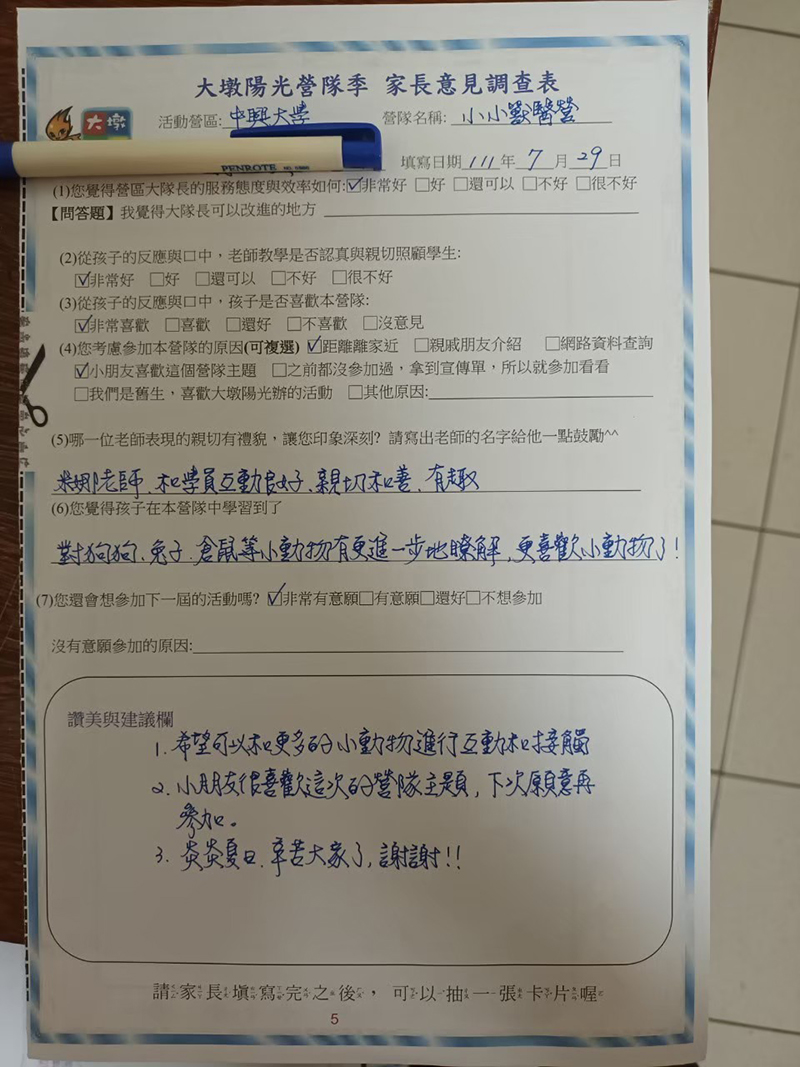 大墩陽光營隊季 家長意見調查表
大墩
活動營區: 中興大學 營隊名稱: 小小獸醫營
PENROTE
填寫日期 111年 7 月 29 日
(1)您覺得營區大隊長的服務態度與效率如何:☑非常好 □好 □還可以 □不好 □很不好
【問答題】我覺得大隊長可以改進的地方
(2)從孩子的反應與口中，老師教學是否認真與親切照顧學生:
☑非常好 □好 □還可以 □不好 □很不好
(3)從孩子的反應與口中，孩子是否喜歡本營隊:
☑非常喜歡 □喜歡 □還好 □不喜歡 □沒意見
(4)您考慮參加本營隊的原因(可複選) ☑距離離家近 □親戚朋友介紹 □網路資料查詢
☑小朋友喜歡這個營隊主題 □之前都沒參加過，拿到宣傳單，所以就參加看看
□我們是舊生，喜歡大墩陽光辦的活動 □其他原因:
(5)哪一位老師表現的親切有禮貌，讓您印象深刻? 請寫出老師的名字給他一點鼓勵^^
老師、和學員互動良好、親切和善、有趣
(6)您覺得孩子在本營隊中學習到了
對狗狗、兔子、倉鼠等小動物有更進一步地瞭解，更喜歡小動物了!
(7)您還會想參加下一屆的活動嗎? ☑非常有意願□有意願□還好□不想參加
沒有意願參加的原因:
讚美與建議欄
1. 希望可以和更多的小動物進行互動和接觸
2. 小朋友很喜歡這次的營隊主題，下次願意再
參加。
3. 炎炎夏日，辛苦大家了，謝謝!!
請家長填寫完之後，可以抽一張卡片喔
5